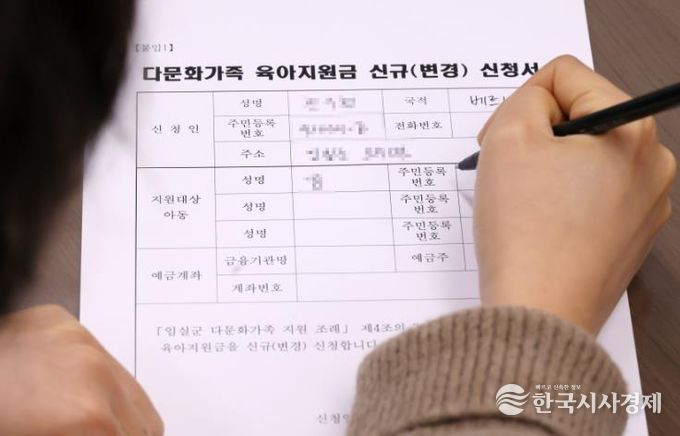 [붙임1]
다문화가족 육아지원금 신규(변경) 신청서
신 청 인
성명
국적
베르
주민등록
번호
전화번호
주소
지원대상
아동
성명
주민등록
번호
성명
주민등록
번호
성명
주민등록
번호
예금계좌
금융기관명
예금주
계좌번호
「임실군 다문화가족 지원 조례」 제4조의
육아지원금을 신규(변경) 신청합니다
신청인
빠르고 신속한 정보
한국시사경제